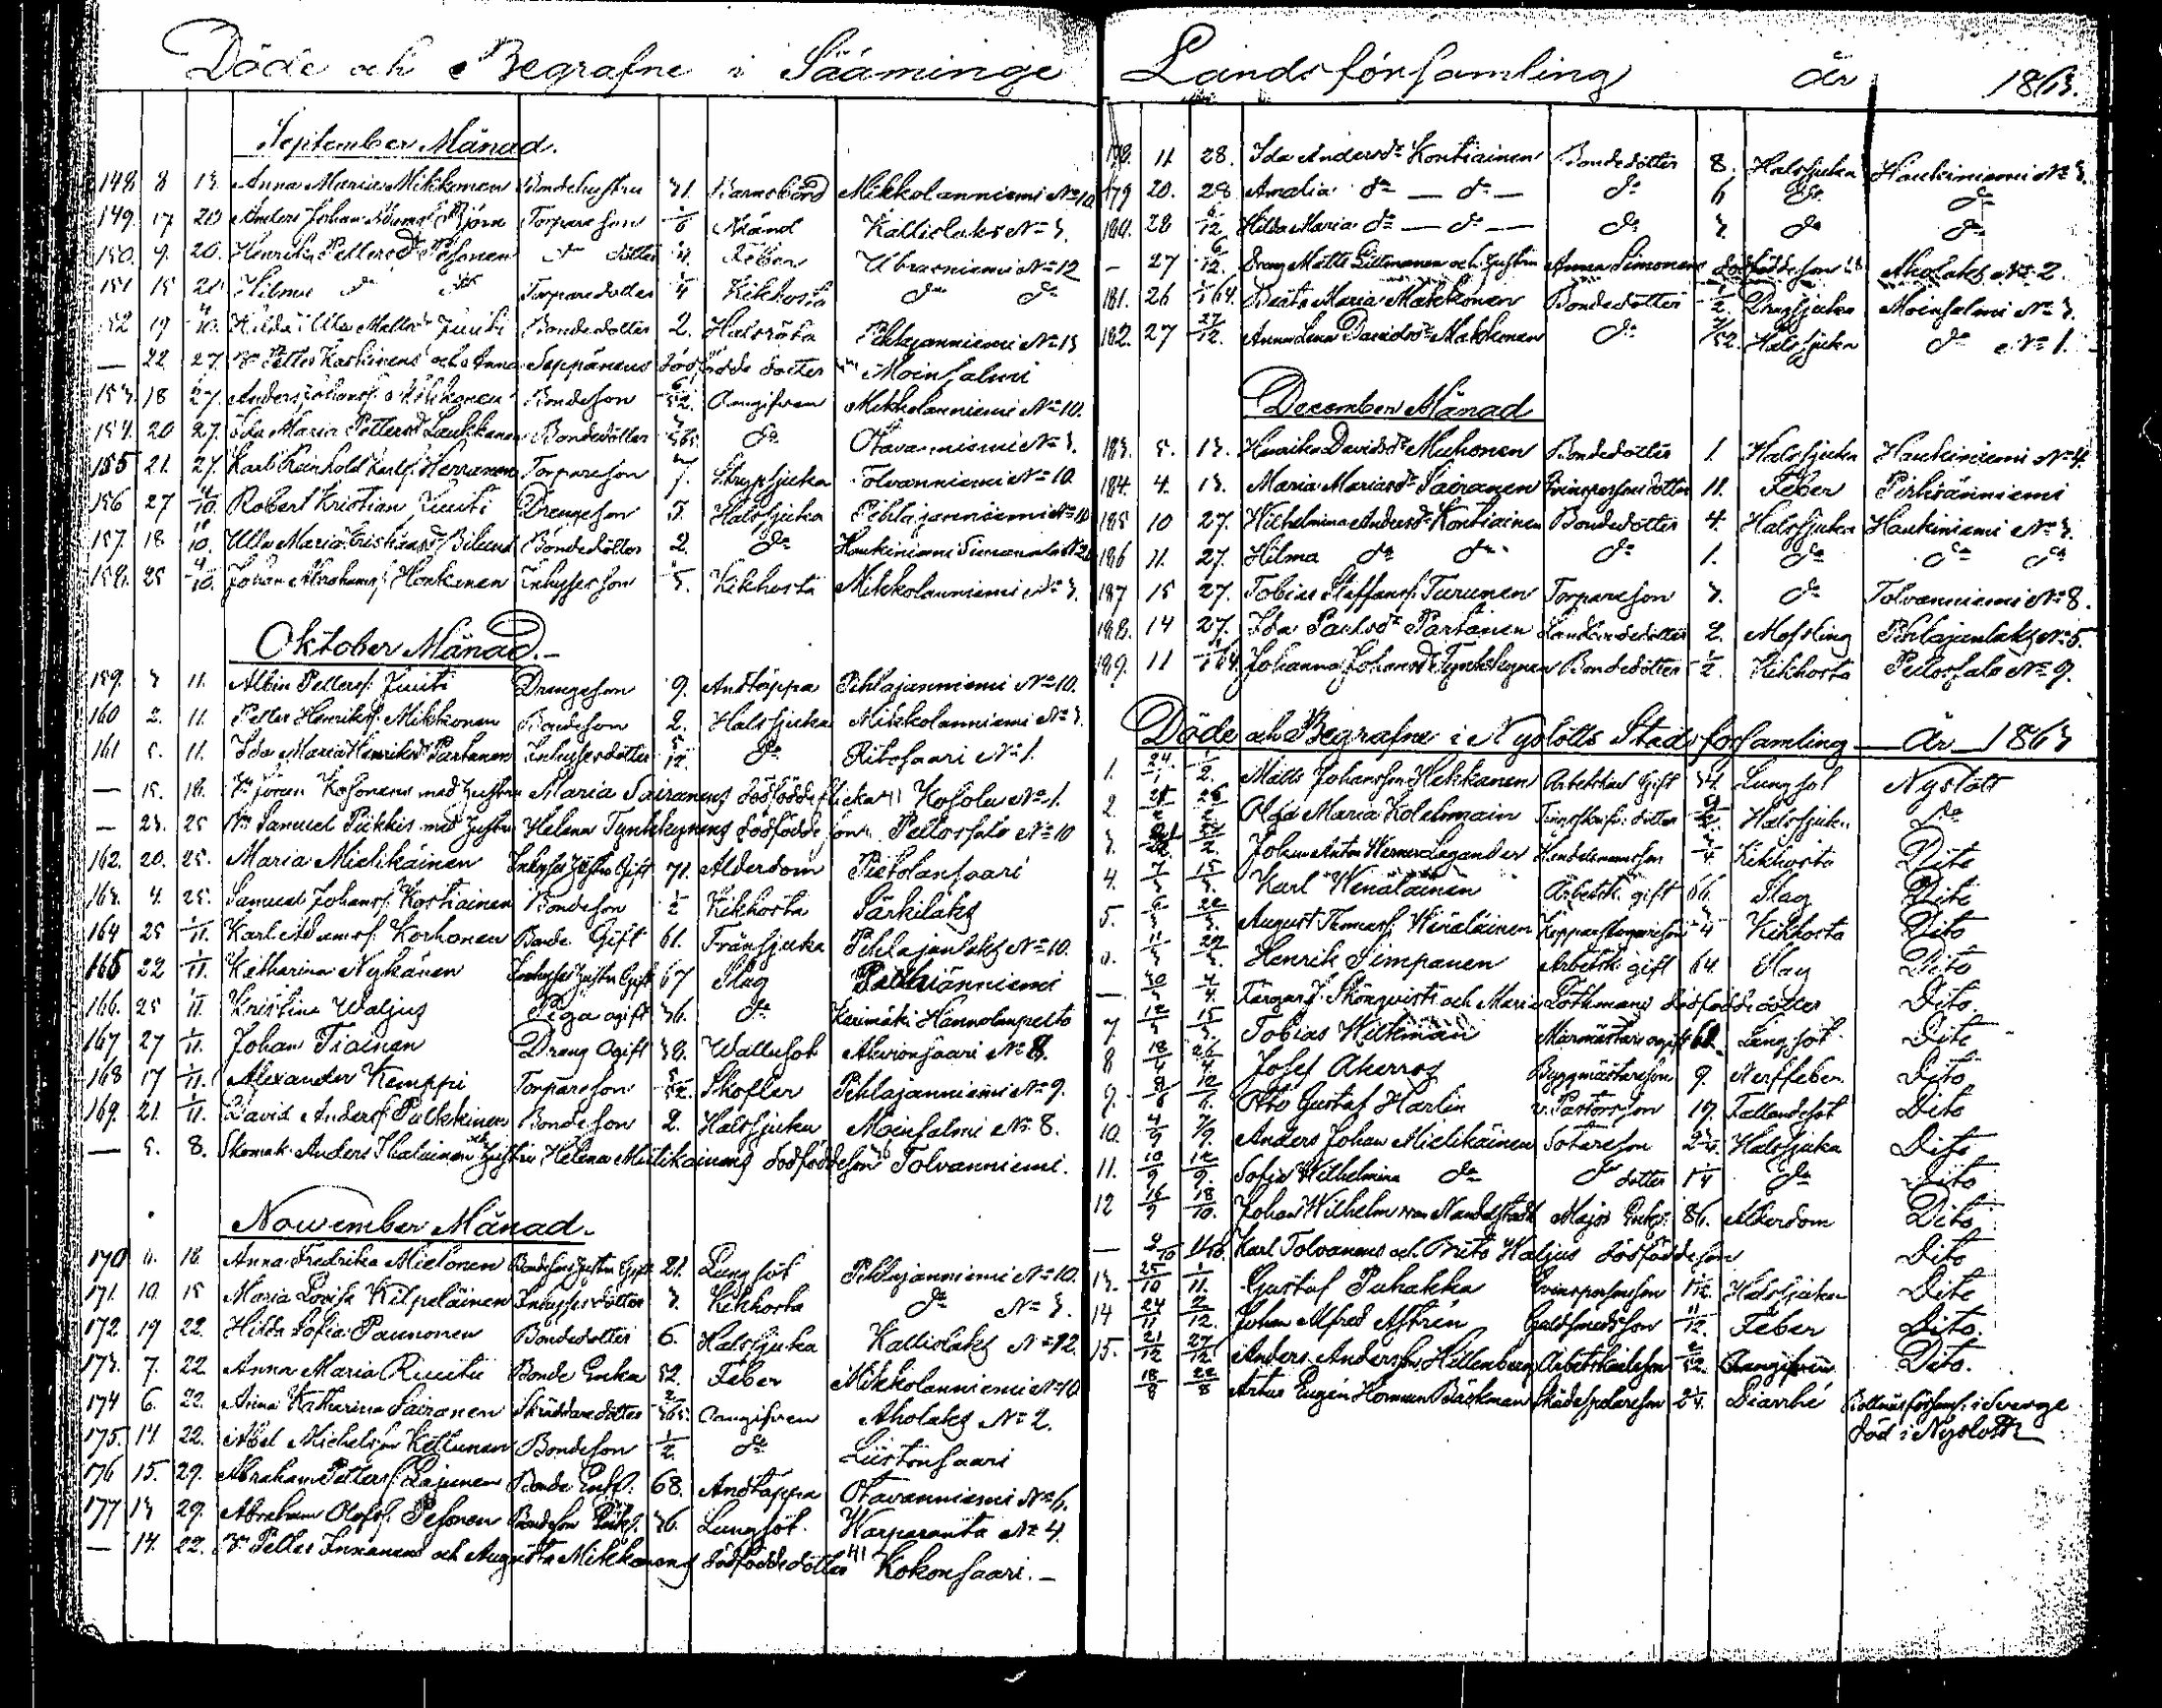 Döde och Begrafne i Sääminge
September Månad.
148. 8 13. Anna Maria Mikkonen Bondehustru 31. Barnsbörd Mikkolanniemi No 10
149. 17 20 Anders Johan Björn Torpareson Kalliolaks No 3.
150. 9. 20. Henrika Pettersdr Pesonen do dotter 4. Feber No 12
151 15 20 Hilma do do Torparedotter 1/4 Kikhosta do do
152 19 4/10. Hilda Ulla Mattsdr Juuti Bondedotter 2. Halsröta Pihlajanniemi No 13
— 22 27. Petter Kaskinens och Anna Seppänens dödfödde dotter Moinsalmi
153. 18 27. Anders Johansf. Mikkonen Bondeson 6/52. Oangifven Mikkolanniemi No 10.
154. 20 27. Ida Maria Pettersdr Laukkanen Bondedotter 3/365. do Otavanniemi No 3.
155 21. 27. Karl Reinhold Karlsf. Herranen Torpareson 7. Strypsjuka Tolvanniemi No 10.
156 27 4/10. Robert Kristian Juuti Drengeson 3. Halssjuka Pihlajanniemi No 10
157. 18 10. Ulla Maria Bondedotter 2. do Haukiniemi
158. 25 4/10. Johan Abrahamsf. Honkanen Inhysesson 5. Kikhosta Mikkolanniemi No 3.
Oktober Månad.—
159. 3 11. Albin Pettersf. Juuti Drengeson 9. Andtäppa Pihlajanniemi No 10.
160 2. 11. Petter Henriksf. Mikkonen Bondeson 2. Halssjuka Mikkolanniemi No 3.
161 5. 11. Ida Maria Henriksdr Partanen Inhysesdotter 5/12. do Ritosaari No 1.
— 15. 18. Jöran Kosonens med hustru Maria Sairanens dödfödde flicka Kosola No 1.
— 23. 25 Samuel Pukkis med hustru Helena Tynkkynens dödfödde son Pellossalo No 10
162. 20. 25. Maria Mielikäinen Inhyses hustru Gift 71. Alderdom Pietolansaari
163. 4. 25. Samuel Johansf. Kostiainen Bondeson 1/2 Kikhosta Särkilaks
164 25 1/11. Karl Adamsf. Korhonen Bonde Gift 61. Frånsjuka Pihlajanlaks No 10.
165 22 1/11. Katharina Nykänen Inhyses hustru Gift 67 Slag Pihlianniemi
166. 25 1/11 Kristina Waljus Piga ogift 36. do Kerimäki Hannolanpelto
167 27 1/11. Johan Tiainen Dreng Ogift 30. Wattusot Ahvionsaari No 8.
168 17 1/11. Alexander Kemppi Torpareson 3/52. Skofler Pihlajanniemi No 9.
169. 21. 1/11. David Andersf. Puikkinen Bondeson 2. Halssjuka Moinsalmi No 8.
— 5. 8. Skomak. Anders Ikalainens och hustru Helena Mielikainens dödfödde son Tolvanniemi.
November Månad.
170 11. 18. Anna Fredrika Mielonen Bondesons hustru Gift 21. Lungsot Pihlajanniemi No 10.
171. 10 15 Maria Lovisa Kilpeläinen Inhysesdotter 3. Kikhosta do No 3.
172 19 22. Hilda Sofia Paunonen Bondedotter 6. Halssjuka Kalliolaks No 12.
173. 7. 22 Anna Maria Riutta Bonde Enka 52. Feber Mikkolanniemi No 10
174 6. 22. Anna Katharina Sairanen Skräddaredotter 2/365. Oangifven Aholaks No 2.
175. 14. 22. Abel Michelsson Kettunen Bondeson 1/2. do Liistonsaari
176 15. 29. Abraham Pettersf. Lajunen Bonde Enkl. 68. Andtäppa Otavanniemi No 6.
177 13 29. Abraham Olofsf. Pesonen Bondeson Enkl. 36. Lungsot. Warparanta No 4.
— 14. 22. Petter Innanens och Augusta Mikkonens dödfödde dotter Kokonsaari.—
Landsförsamling år 1863.
178. 11 28. Ida Andersdr Kontiainen Bondedotter 8. Halssjuka Haukiniemi No 3.
179 20. 28 Amalia do — do — do 6 do do
180. 28 6/12. Hilda Maria do — do — do 3. do do
— 27 6/12. Dreng Matts Littmanen och hustru Anna Simonens dödfödde son Aholaks No 2.
181. 26 1/1 64. Beata Maria Makkonen Bondedotter 1/2. Dragsjuka Moinsalmi No 3.
182. 27 27/12. Anna Lena Davidsdr Makkonen do 7/52. Halssjuka do No 1.
December Månad
183. 5. 13. Henrika Davidsdr Muhonen Bondedotter 1. Halssjuka Haukiniemi No 4.
184. 4. 13. Maria Mariasdr Sairanen Qvinspersonsdotter 11. Feber Pihlisänniemi
185 10 27. Wilhelmina Andersdr Kontiainen Bondedotter 4. Halssjuka Haukiniemi No 3.
186 11. 27. Hilma do do do 1. do do do
187 15 27. Tobias Staffansf. Turunen Torpareson 3. do Tolvanniemi No 8.
188. 14 27. Ida Paulsdr Partanen Landbondedotter 2. Messling Pihlajanlaks No 5.
189. 11 1/1 64. Johanna Johansdr Tynkkynen Bondedotter 1/2. Kikhosta Pellossalo No 9.
Döde och Begrafne i Nyslotts Stadsförsamling År 1863
1. 24/1 1/2. Matts Johansson Hekkanen Arbetskarl Gift 34. Lungsot Nyslott
2. Olga Maria Kolehmain dotter Halssjuka do
3. Johan Anton Werner Legander Handelsmansson 3/4 Kikhosta Dito
4. 7/3 15/3. Karl Wenäläinen Arbetsk. gift 66. Slag Dito
5. August Thomasf. Wenäläinen 3/4 Kikhosta Dito
6. 11/3 29/3. Henrik Simpanen Arbetsk. gift 64. Slag Dito
— 30/3 4/4. Färgar J. Skönqvists och Maria Tothmans dödfödde dotter Dito.
7. Tobias Wilkman Murmästare ogift 60. Lungsot Dito
8 18/4 26/4. Josef Akerros Byggmästareson 9. Nerffeber Dito
9. Otto Gustaf Harlin v. Pastorsson 19. Fallandesot Dito
10. 4/9 7/9. Anders Johan Mielikäinen Sotareson 2 3/4. Halssjuka Dito
11. 10/9 12/9. Sofia Wilhelmina do do dotter 1/4 do Dito
12 16/9 18/10. Johan Wilhelm von Nandelstadt Major Enkl. 86. Alderdom Dito
— 9/10 11/10. Karl Tolvanens och Brita Waljus dödfödde son Dito
13. 25/10 1/11. Gustaf Puhakka Qvinspersonsson Halssjuka Dito
14 24/11 2/12. Johan Alfred Astrén Guldsmedsson 11/12. Feber Dito.
15. 21/12 27/12. Anders Andersson Hillenberg Arbetskarlsson 2/52. Oangifven Dito.
18/8 22/8 Artur Eugén Herman Bäckman Skådespelareson 2 1/4. Diarrhé församl. i Sverge
död i Nyslott